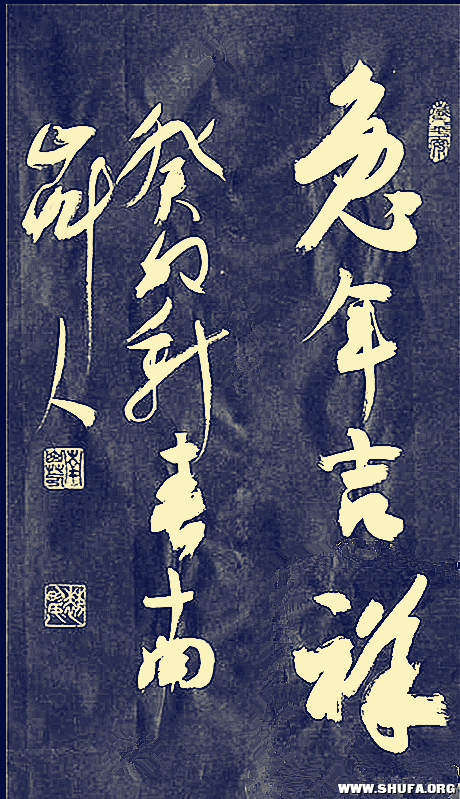 兔年吉祥
癸卯新春南
人
WWW.SHUFA.ORG